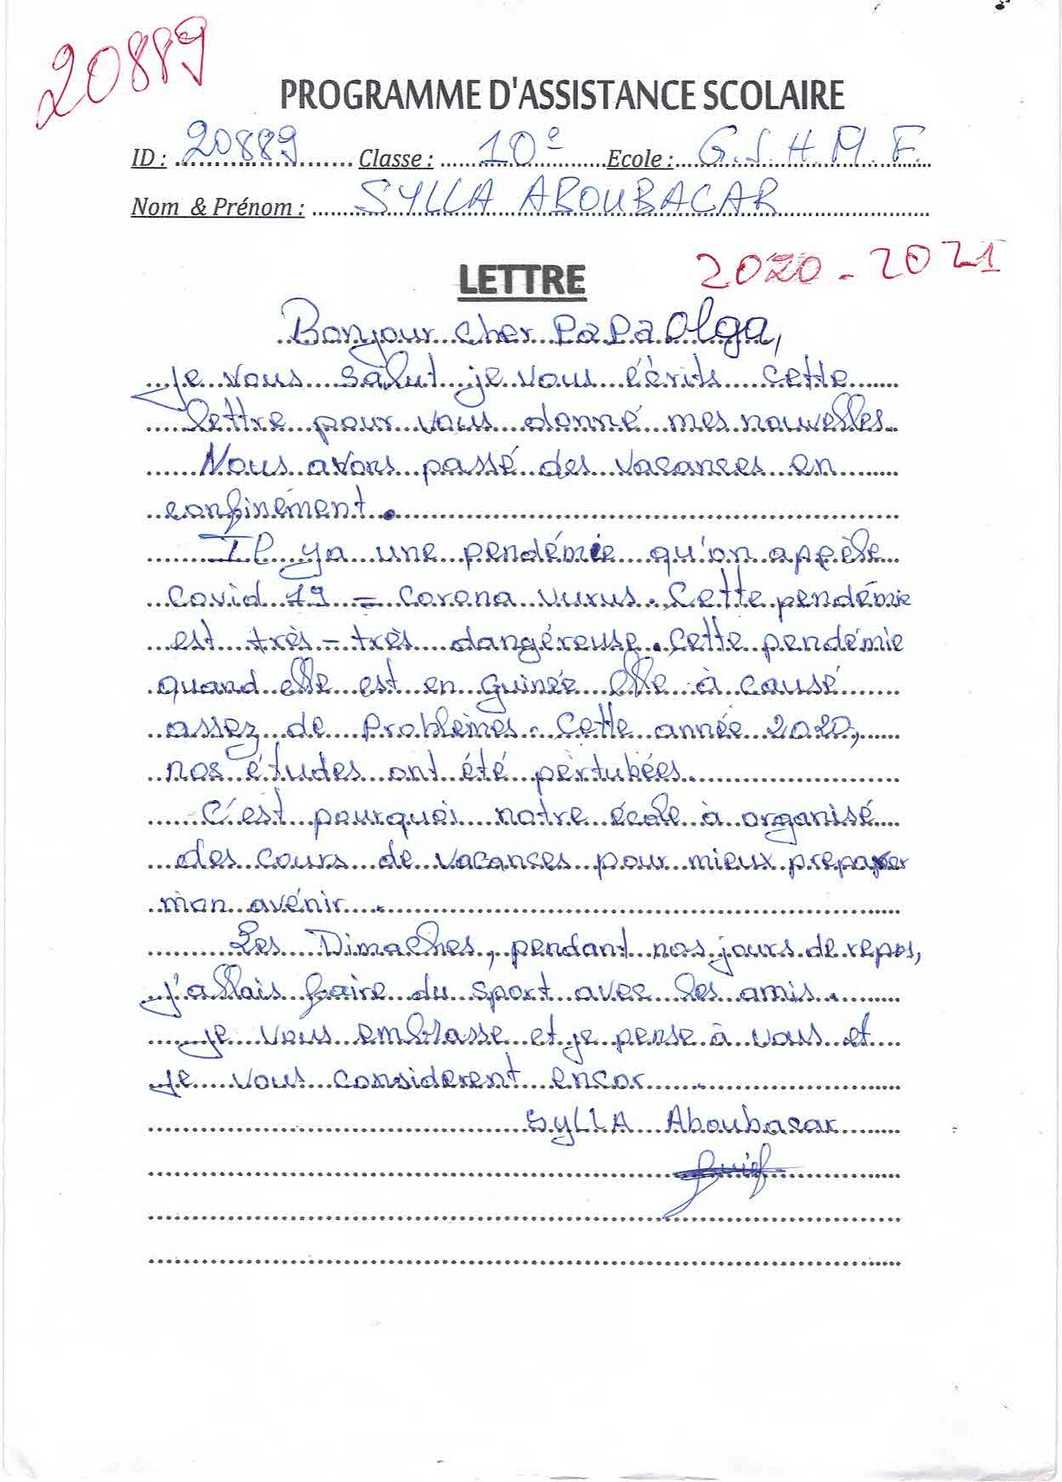 20889
PROGRAMME D'ASSISTANCE SCOLAIRE
ID : 20889 Classe : 10e Ecole : G.S.H.M.F.
Nom & Prénom : SYLLA ABOUBACAR
2020-2021
LETTRE
Bonjour cher PaPa Olga,
Je vous salut je vous écrits cette
lettre pour vous donné mes nouvelles.
Nous avons passé des vacances en
confinement.
Il ya une pendémie qu'on appèle
Covid 19 = Corona vurus. Cette pendémie
est très-très dangéreuse. Cette pendémie
quand elle est en Guinée elle à causé
assez de Problèmes. Cette année 2020,
nos études ont été pertubées.
C'est pourquoi notre école à organisé
des cours de vacances pour mieux preparer
mon avénir.
Les Dimaches, pendant nos jours de repos,
j'allais faire du sport avec les amis.
Je vous embrasse et je pense à vous et
je vous considerent encor
Sylla Aboubacar